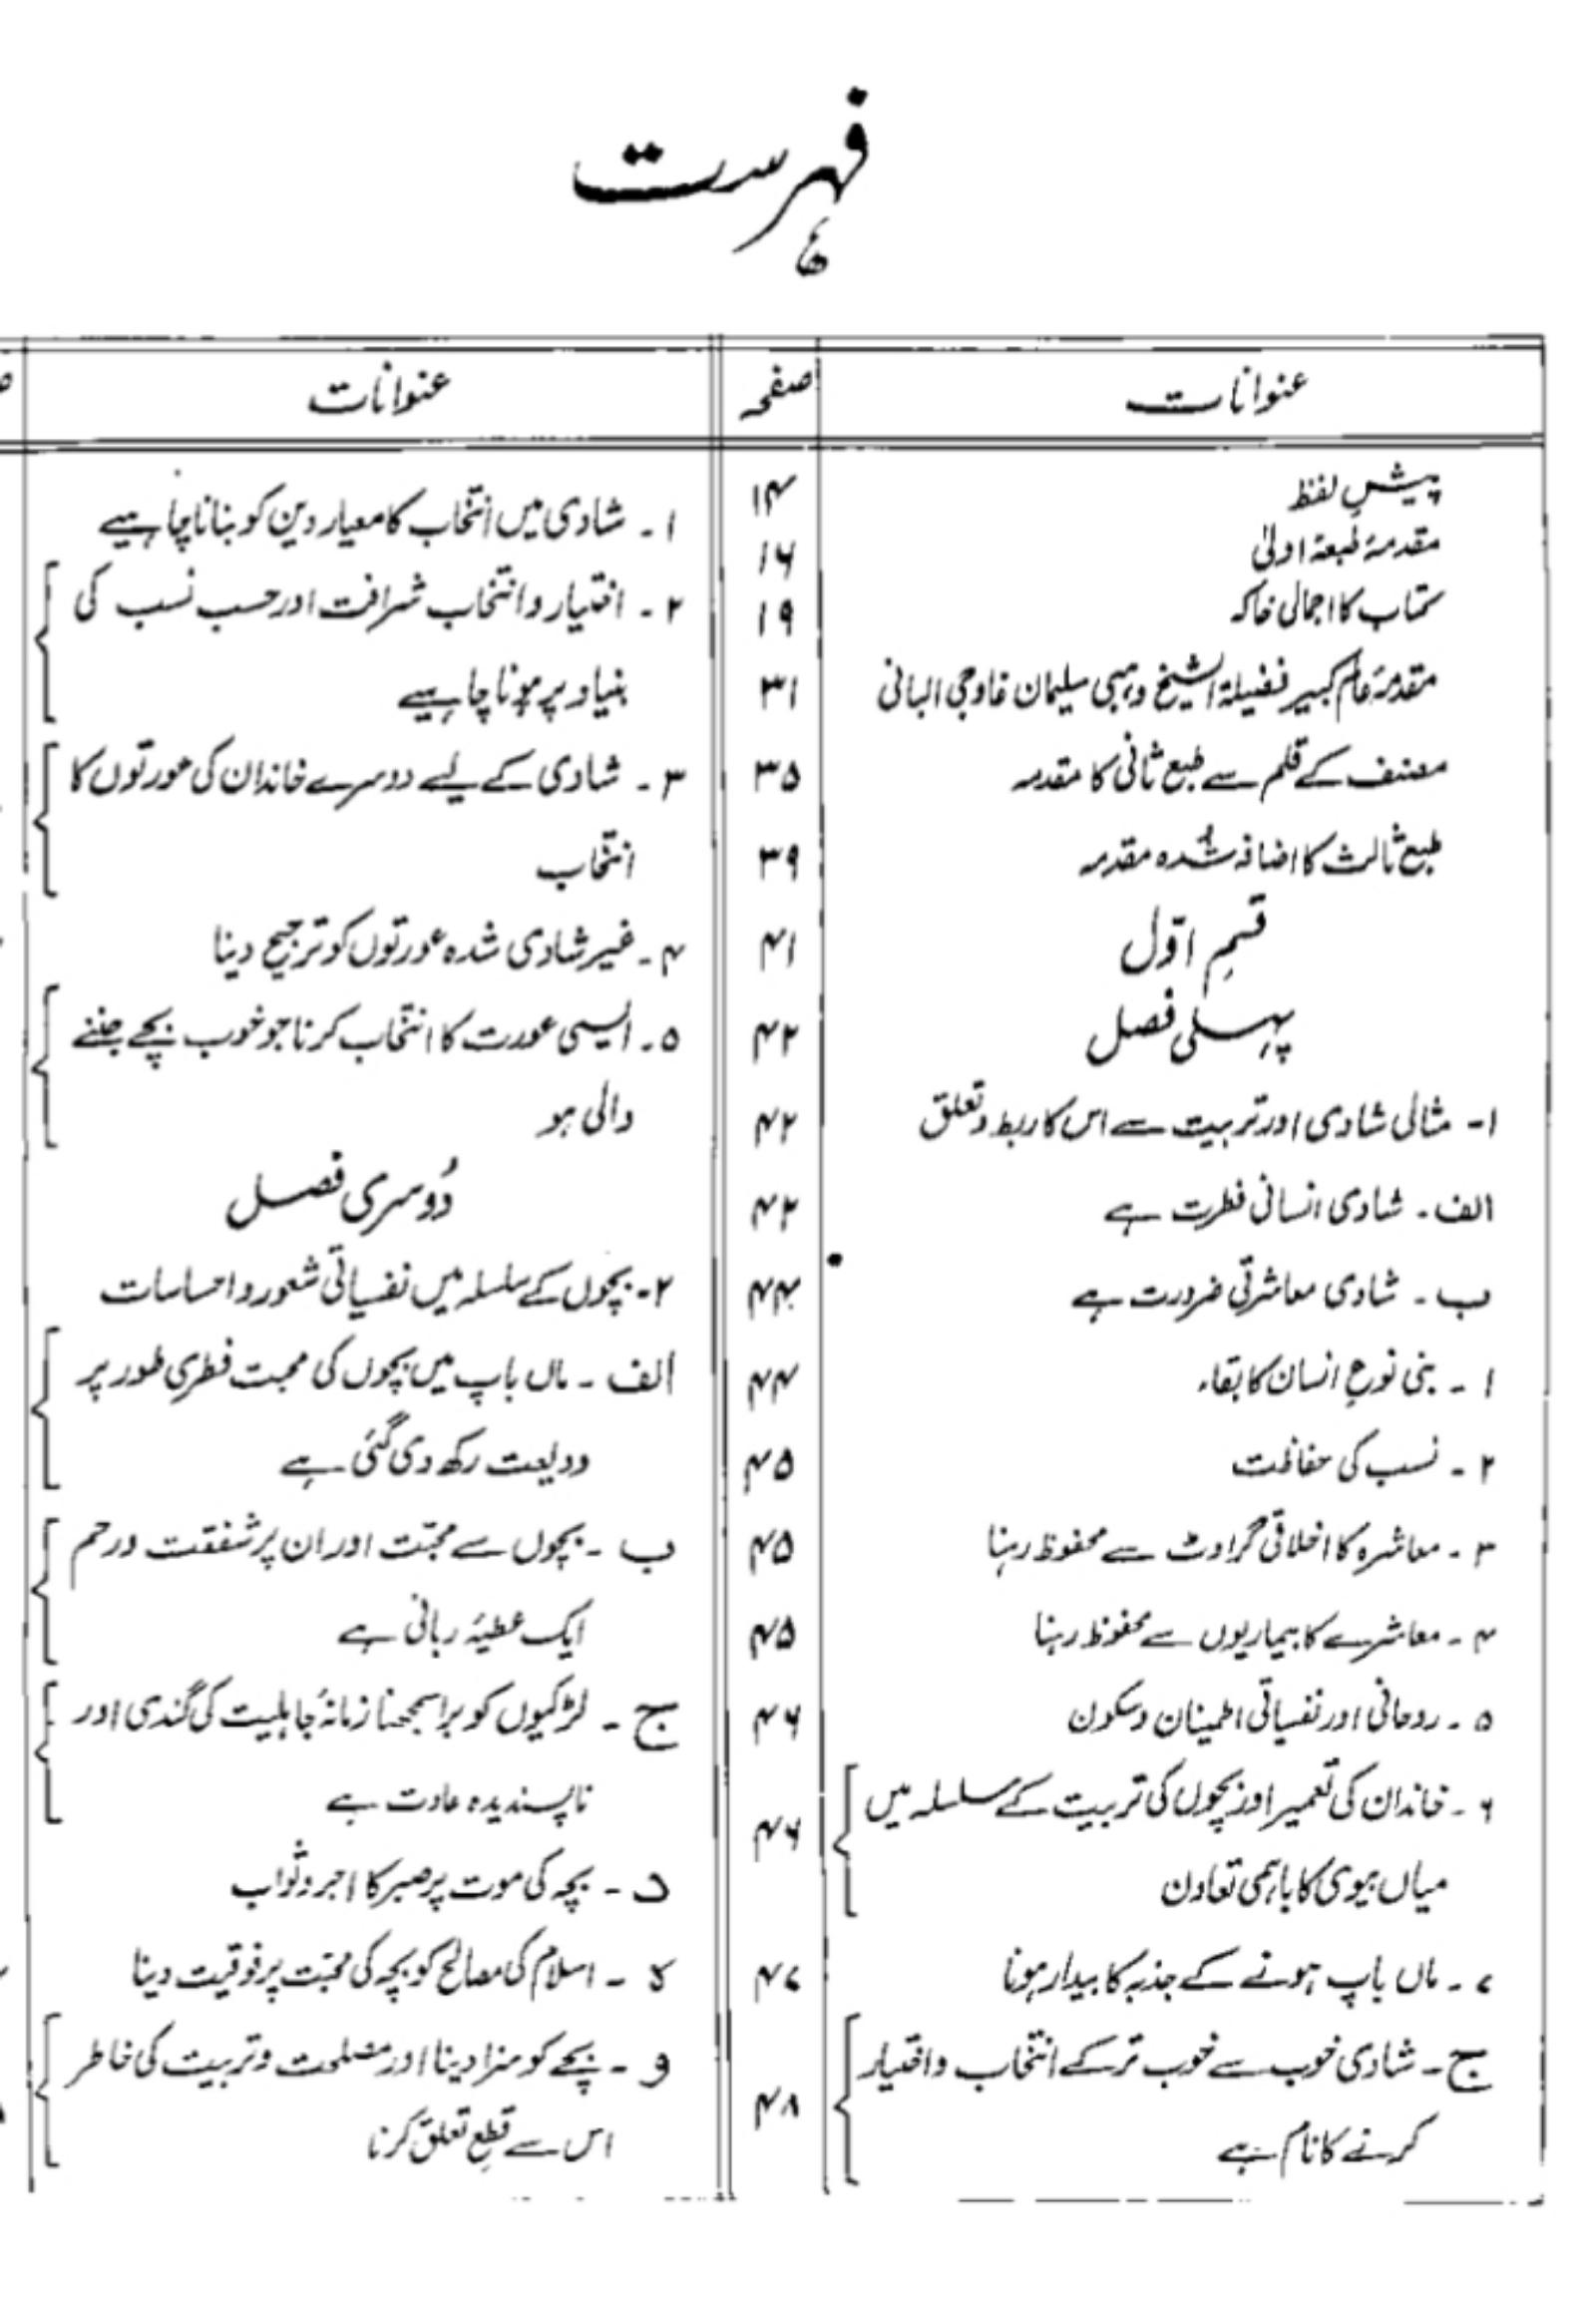 فہرست
عنوانات
صفحہ
پیش لفظ ۱۴
مقدمۂ طبعۂ اولیٰ ۱۶
کتاب کا اجمالی خاکہ ۱۹
مقدمۂ عالم کبیر فضیلۃ الشیخ وہبی سلیمان غاوجی البانی ۳۱
مصنف کے قلم سے طبع ثانی کا مقدمہ ۳۵
طبع ثالث کا اضافہ شدہ مقدمہ ۳۹
قسمِ اوّل ۴۱
پہلی فصل ۴۲
۱- مثالی شادی اور تربیت سے اس کا ربط و تعلق ۴۲
الف ۔ شادی انسانی فطرت ہے ۴۲
ب ۔ شادی معاشرتی ضرورت ہے ۴۴
۱ ۔ بنی نوعِ انسان کا بقاء ۴۴
۲ ۔ نسب کی حفاظت ۴۵
۳ ۔ معاشرہ کا اخلاقی گراوٹ سے محفوظ رہنا ۴۵
۴ ۔ معاشرے کا بیماریوں سے محفوظ رہنا ۴۵
۵ ۔ روحانی اور نفسیاتی اطمینان و سکون ۴۶
۶ ۔ خاندان کی تعمیر اور بچوں کی تربیت کے سلسلہ میں
میاں بیوی کا باہمی تعاون ۴۶
۷ ۔ ماں باپ ہونے کے جذبہ کا بیدار ہونا ۴۷
ج ۔ شادی خوب سے خوب تر کے انتخاب و اختیار
کرنے کا نام ہے ۴۸
عنوانات
۱ ۔ شادی میں انتخاب کا معیار دین کو بنانا چاہیے
۲ ۔ اختیار و انتخاب شرافت اور حسب نسب کی
بنیاد پر ہونا چاہیے
۳ ۔ شادی کے لیے دوسرے خاندان کی عورتوں کا
انتخاب
۴ ۔ غیر شادی شدہ عورتوں کو ترجیح دینا
۵ ۔ ایسی عورت کا انتخاب کرنا جو خوب بچے جننے
والی ہو
دُوسری فصل
۲ ۔ بچوں کے سلسلہ میں نفسیاتی شعور و احساسات
الف ۔ ماں باپ میں بچوں کی محبت فطری طور پر
ودیعت رکھ دی گئی ہے
ب ۔ بچوں سے محبّت اور ان پر شفقت و رحم
ایک عطیۂ ربانی ہے
ج ۔ لڑکیوں کو برا سمجھنا زمانۂ جاہلیت کی گندی اور
ناپسندیدہ عادت ہے
د ۔ بچہ کی موت پر صبر کا اجر و ثواب
ہ ۔ اسلام کی مصالح کو بچہ کی محبّت پر فوقیت دینا
و ۔ بچے کو سزا دینا اور مصلحت و تربیت کی خاطر
اس سے قطعِ تعلق کرنا